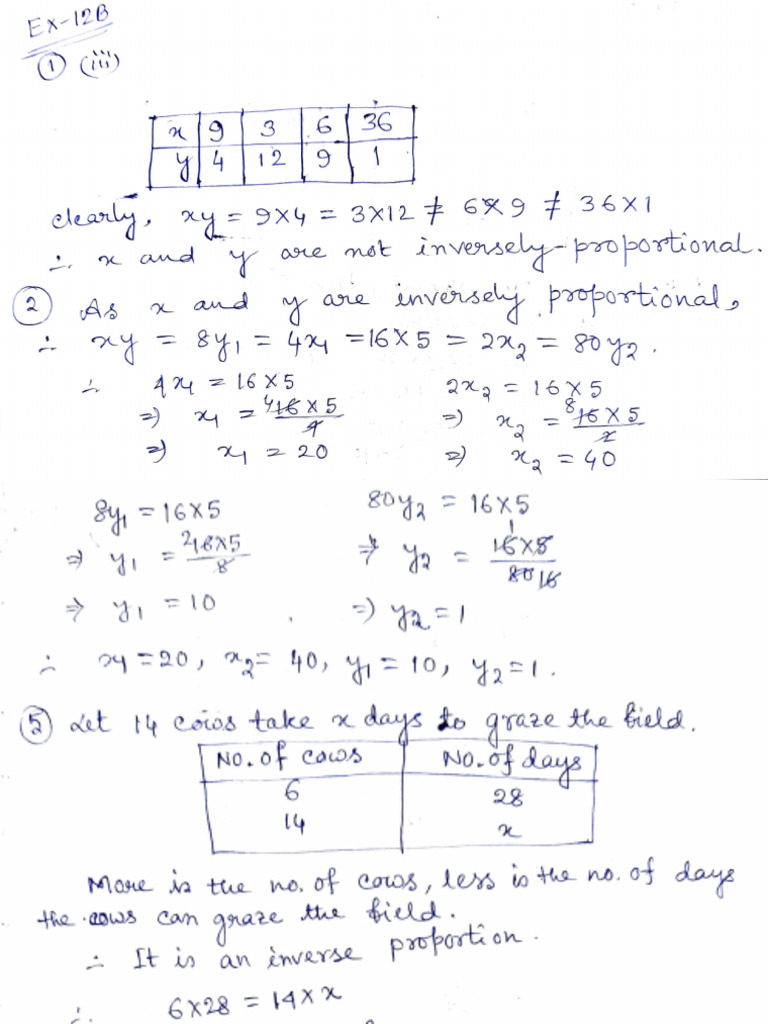 Ex-12B
① (iii)
x 9 3 6 36
y 4 12 9 1
Clearly, xy = 9×4 = 3×12 ≠ 6×9 ≠ 36×1
∴ x and y are not inversely-proportional.
② As x and y are inversely proportional,
∴ xy = 8y₁ = 4x₁ = 16×5 = 2x₂ = 80y₂.
∴ 4x₁ = 16×5 2x₂ = 16×5
⇒ x₁ = 16×5/4 ⇒ x₂ = 16×5/2
⇒ x₁ = 20 ⇒ x₂ = 40
8y₁ = 16×5 80y₂ = 16×5
⇒ y₁ = 16×5/8 ⇒ y₂ = 16×5/80
⇒ y₁ = 10 . ⇒ y₂ = 1
∴ x₁ = 20, x₂ = 40, y₁ = 10, y₂ = 1.
⑤ Let 14 cows take x days to graze the field.
No. of cows No. of days
6 28
14 x
More is the no. of cows, less is the no. of days
the cows can graze the field.
∴ It is an inverse proportion.
∴ 6×28 = 14×x